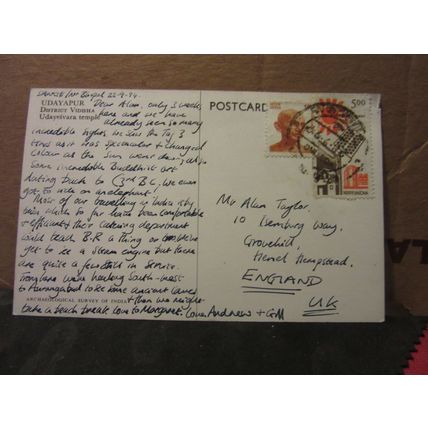 SANCHI Nr Bhopal 22-9-94.
UDAYAPUR
DISTRICT VIDISHA
Udayesvara temple
Dear Alan, only 3 weeks
here and we have
already seen so many
incredible sights. We saw the Taj 3
times as it was spectacular & changed
colour as the sun went down, also
some incredible Buddhist art
dating back to C3rd B.C. We even
got to ride on an elephant!
Most of our travelling in India is by
train which so far has been comfortable
& efficient & their catering department
could teach B.R a thing or two
yet to see a steam engine but there
are quite a few still in service.
we're heading south-west
to Aurangabad to see some ancient caves
& then we might
take a beach break. Love to Margaret. Love Andrew + Gill
ARCHAEOLOGICAL SURVEY OF INDIA
POSTCARD
5.00
Mr Alan Taylor,
10 Isenburg Way,
Grovehill,
Hemel Hempstead,
ENGLAND
UK